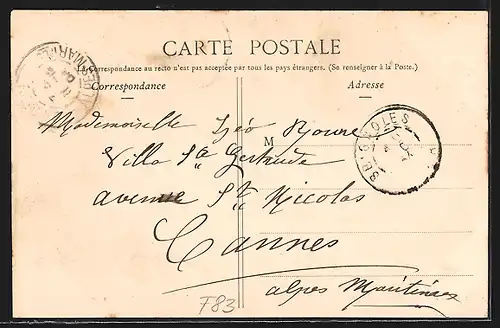 CARTE POSTALE
La Correspondance au recto n'est pas acceptée par tous les pays étrangers. (Se renseigner à la Poste.)
Correspondance
Adresse
M
BRIGNOLES
Mademoiselle Léo
Villa Sᵗᵉ Gertrude
avenue Sᵗ Nicolas
Cannes
alpes Maritimes
F83